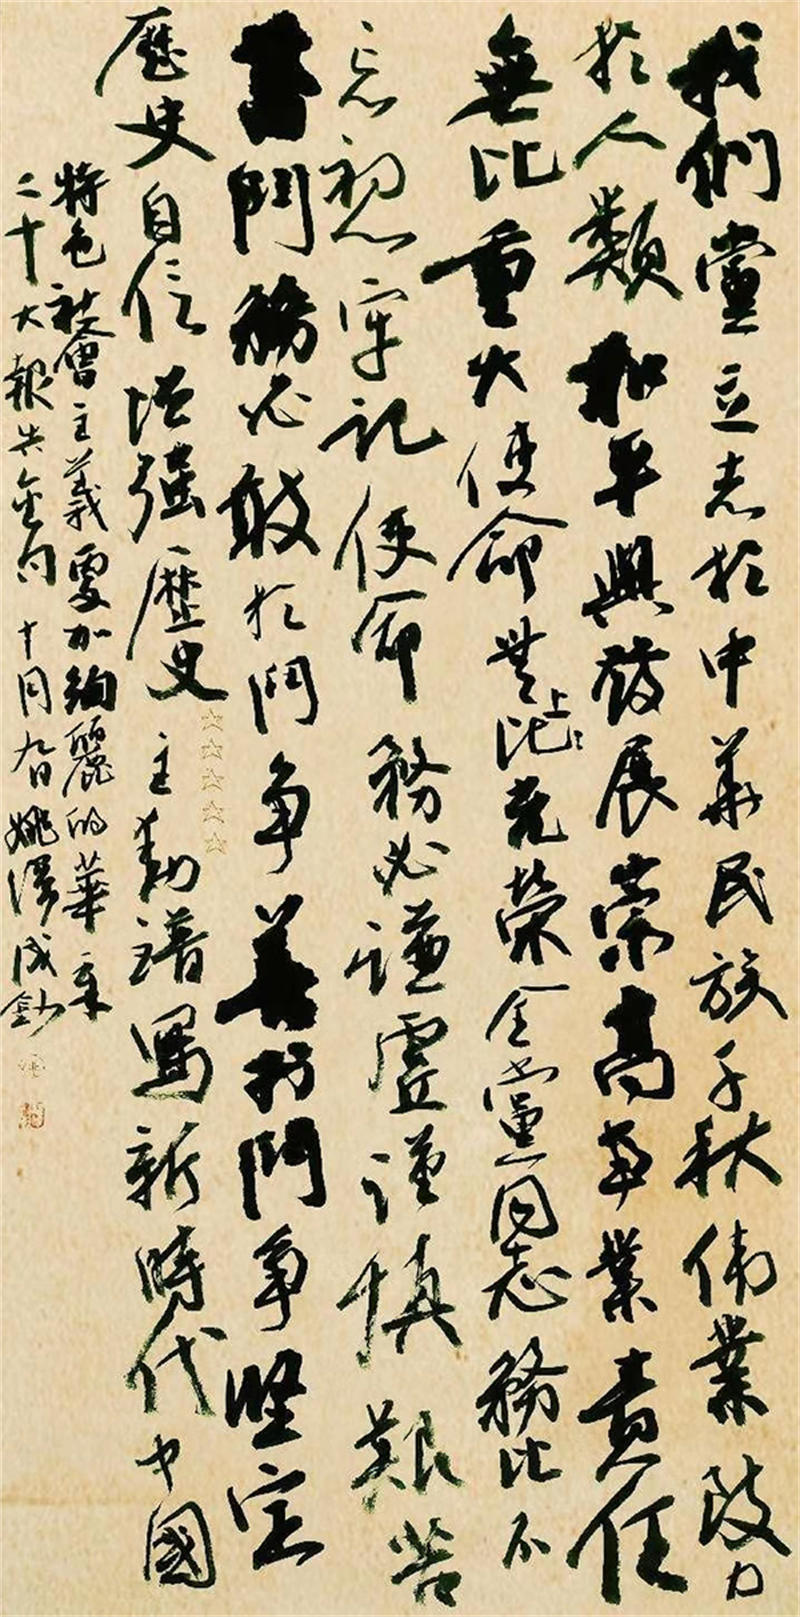 我們黨立志於中華民族千秋偉業致力
於人類和平與發展崇高事業責任
無比重大使命無比上光榮全黨同志務比不
忘初心牢記使命務必謙虛謹慎艱苦
奮鬥務必敢於鬥爭善於鬥爭堅定
歷史自信增强歷史主動譜寫新時代中國
特色社會主義更加絢麗的華章
二十大報告金句十月 姚澤成鈔